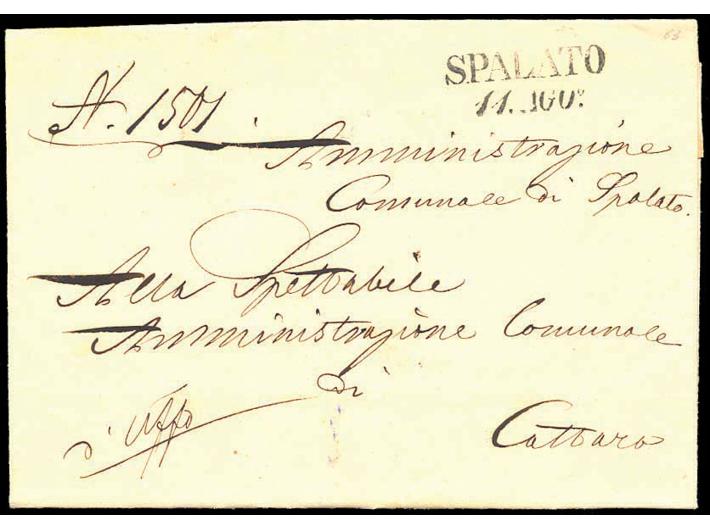 63
SPALATO
11. AGO.º
N. 1501.
Amministrazione
Comunale di Spalato.
Alla Spettabile
Amministrazione Comunale
di
d'Uffo
Cattaro